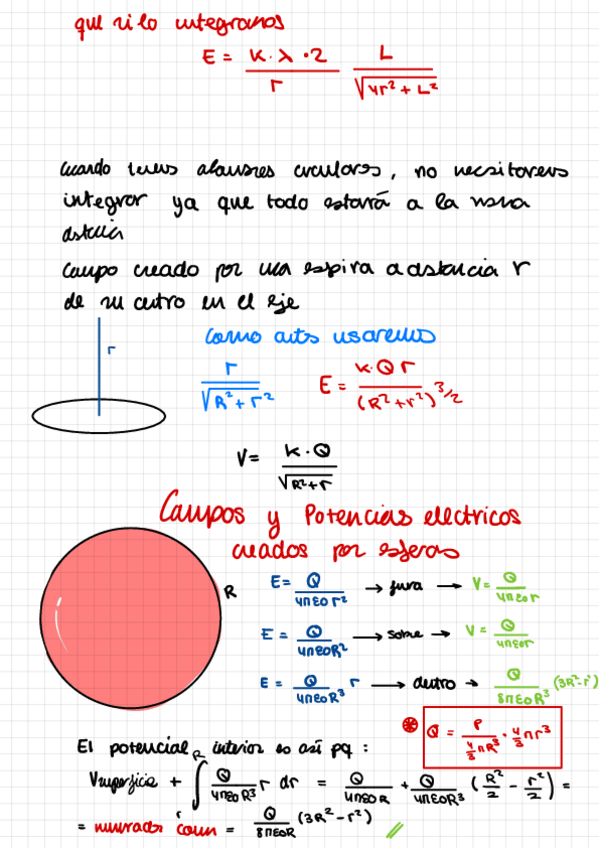 que si lo integramos
E = K·λ·2 / r   L / √(4r² + L²)
Cuando temos alambres circulares, no necesitaremos
integrar ya que todo estará a la misma
distancia
Campo creado por una espira a distancia r
de su centro en el eje
r
como antes usaremos
r / √(R² + r²)
E = K·Q r / (R² + r²)^3/2
V = K·Q / √(R² + r)
Campos y Potencias electricos
creados por esferas
R
E = Q / 4πε0 r² → fuera → V = Q / 4πε0 r
E = Q / 4πε0 R² → sobre → V = Q / 4πε0 r
E = Q / 4πε0 R³ r → dentro → Q / 8πε0 R³ (3R² - r²)
⊛ Q = P / (4/3 π R³) · 4/3 π r³
El potencial interior es así pq:
Vsuperficie + ∫ᵣᴿ Q / 4πε0 R³ r dr = Q / 4πε0 R + Q / 4πε0 R³ (R²/2 - r²/2) =
= minimador comun = Q / 8πε0 R (3R² - r²) //